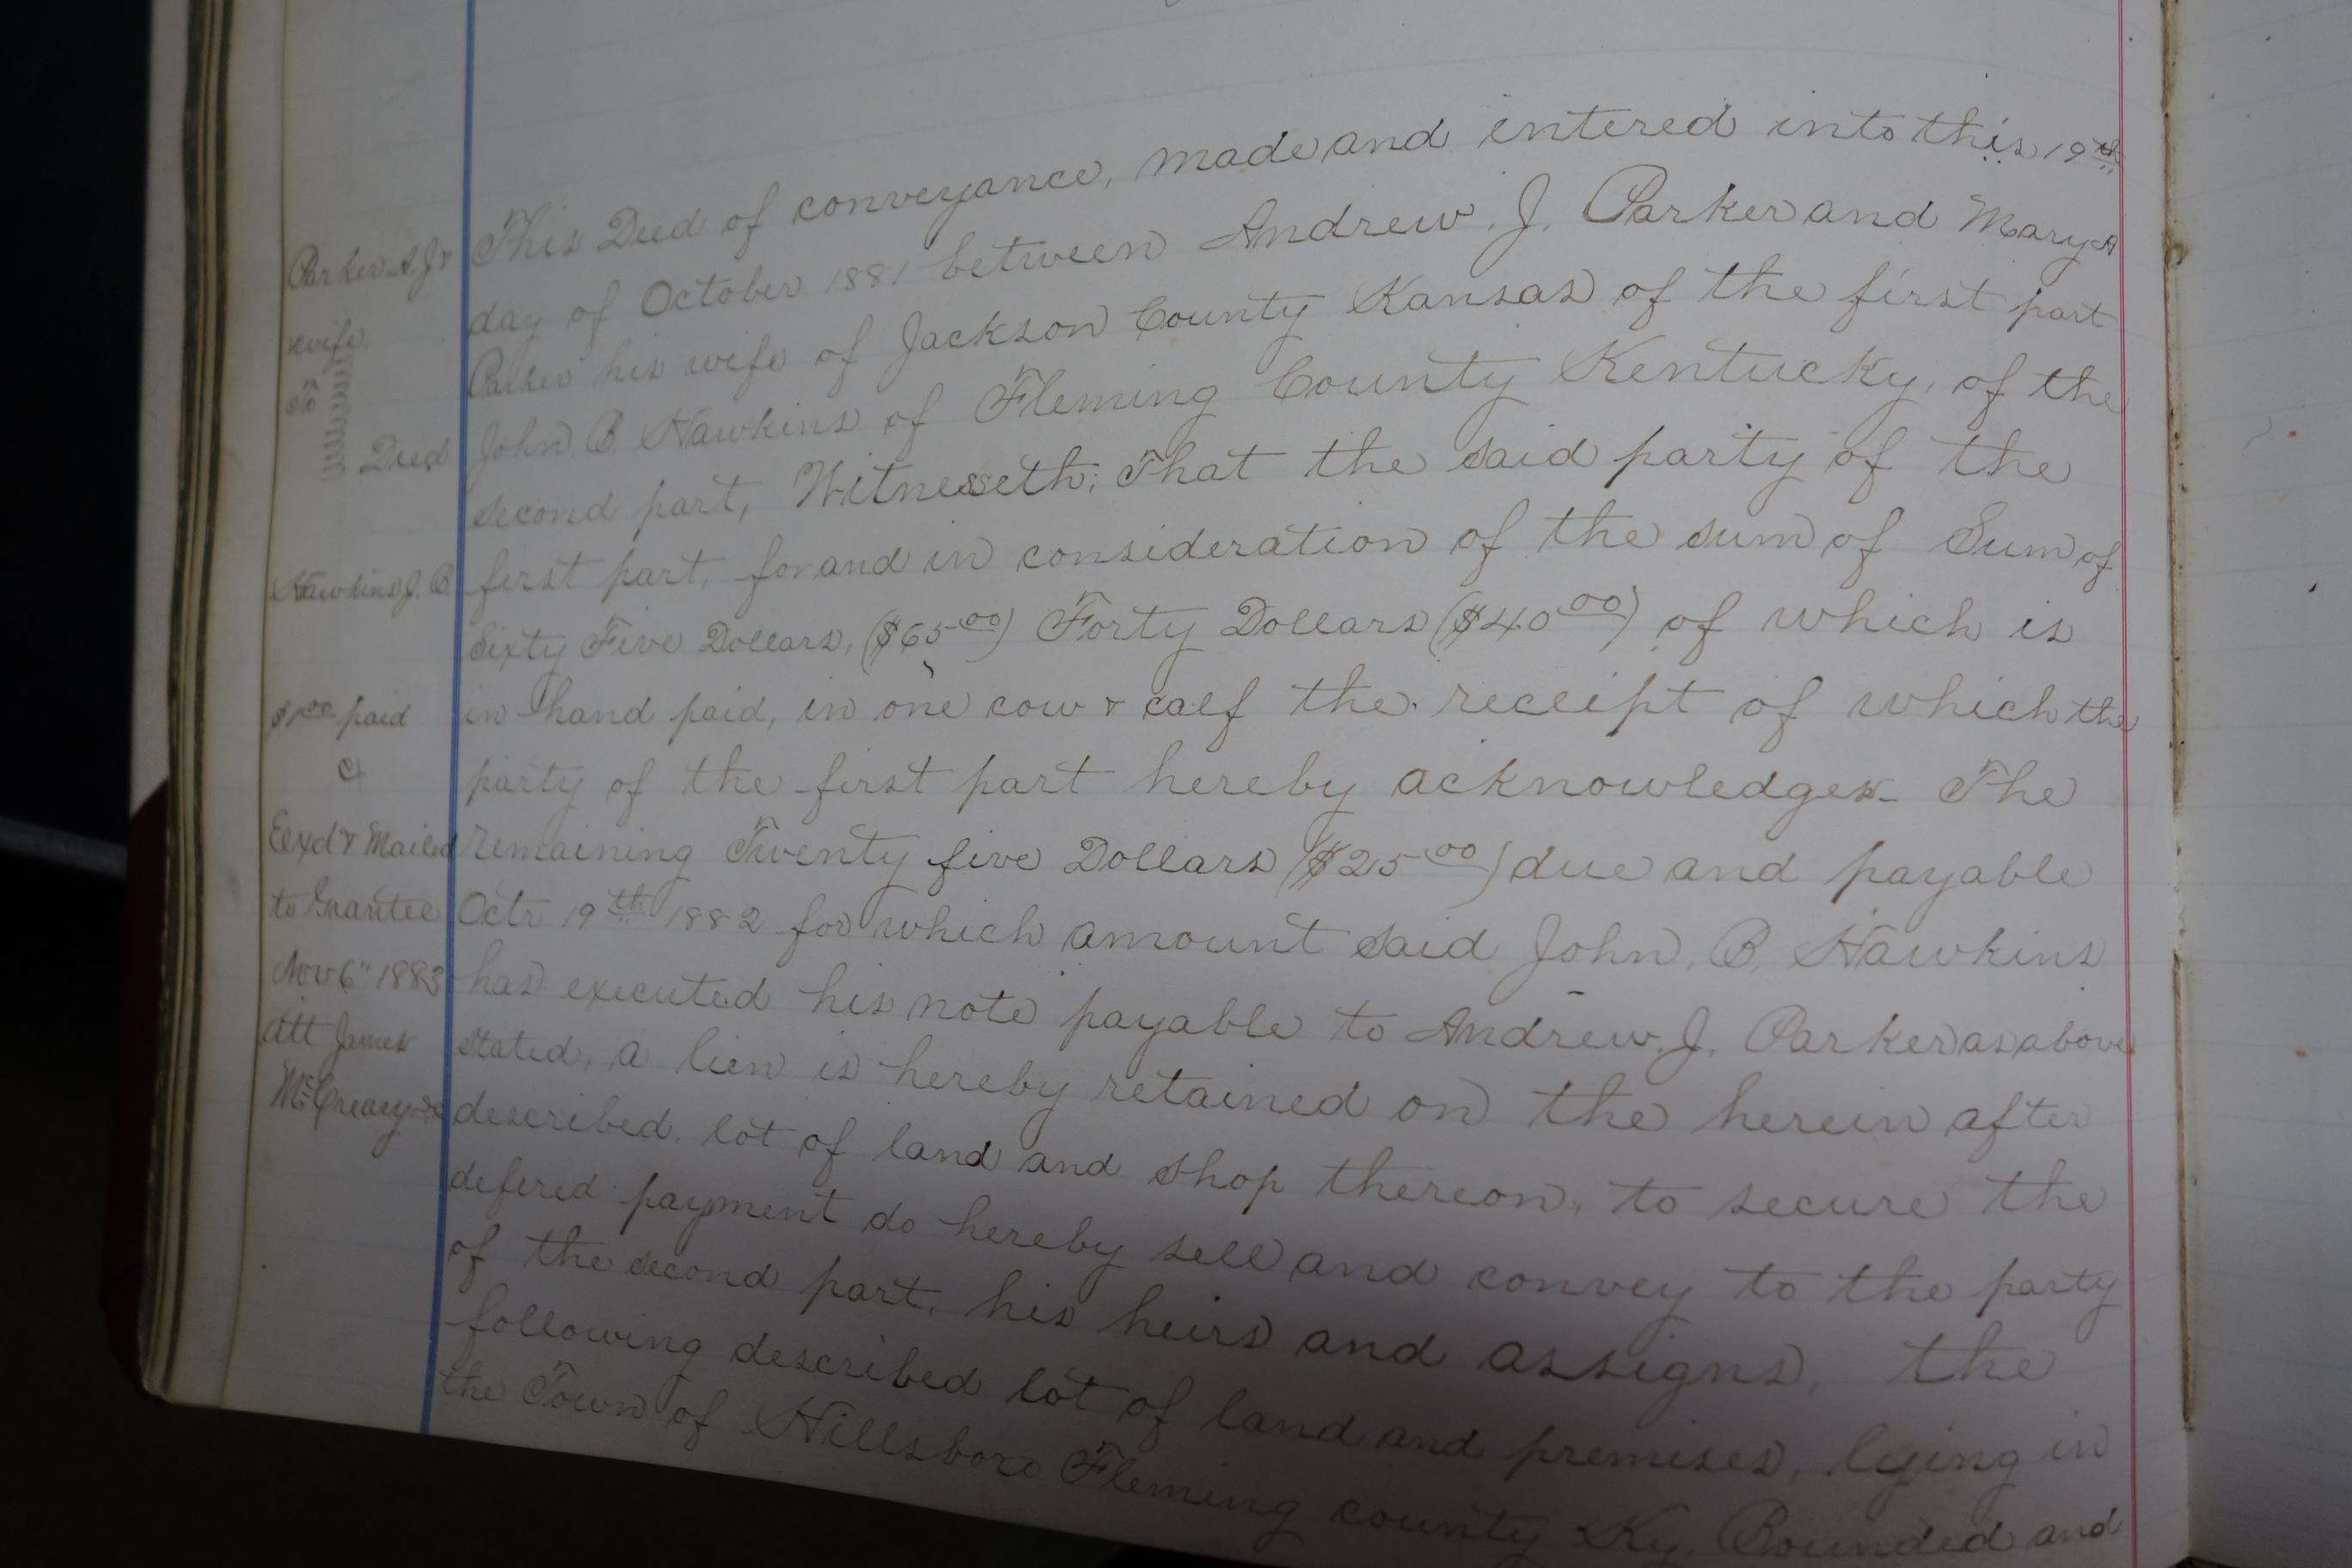 Parker A. J. &
wife
To
Deed
Hawkins J. B.
$1.00 paid
Exd & Mailed
to Grantee
Nov 6" 1883
att James
McCreary
This Deed of conveyance, made and intered into this 19th
day of October 1881 between Andrew. J. Parker and Mary A
Parker his wife of Jackson County Kansas of the first part
John. B. Hawkins of Fleming County Kentucky, of the
second part, Witnesseth; That the said party of the
first part, for and in consideration of the sum of Sum of
Sixty Five Dollars, ($65 00) Forty Dollars ($40 00) of which is
in hand paid, in one cow & calf the receipt of which the
party of the first part hereby acknowledges The
remaining Twenty five Dollars ($25 00) due and payable
Octr 19th 1882 for which amount said John. B. Hawkins
has executed his note payable to Andrew. J. Parker as above
stated, a lien is hereby retained on the herein after
described, lot of land and shop thereon, to secure the
defered payment do hereby sell and convey to the party
of the second part, his heirs and assigns, the
following described lot of land and premises, lying in
the Town of Hillsboro Fleming county Ky. Bounded and